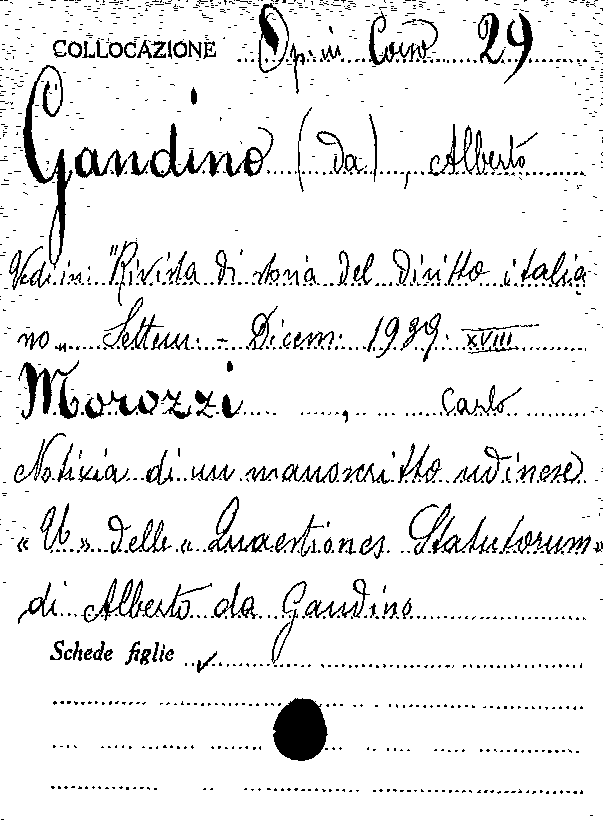 COLLOCAZIONE Op. in Corso 29
Gandino (da), Alberto
Vedi in: "Rivista di storia del diritto italia
no" Settem. - Dicem. 1939. XVIII
Morozzi, Carlo
Notizia di un manoscritto udinese
« U » delle « Quaestiones Statutorum »
di Alberto da Gandino
Schede figlie ✓